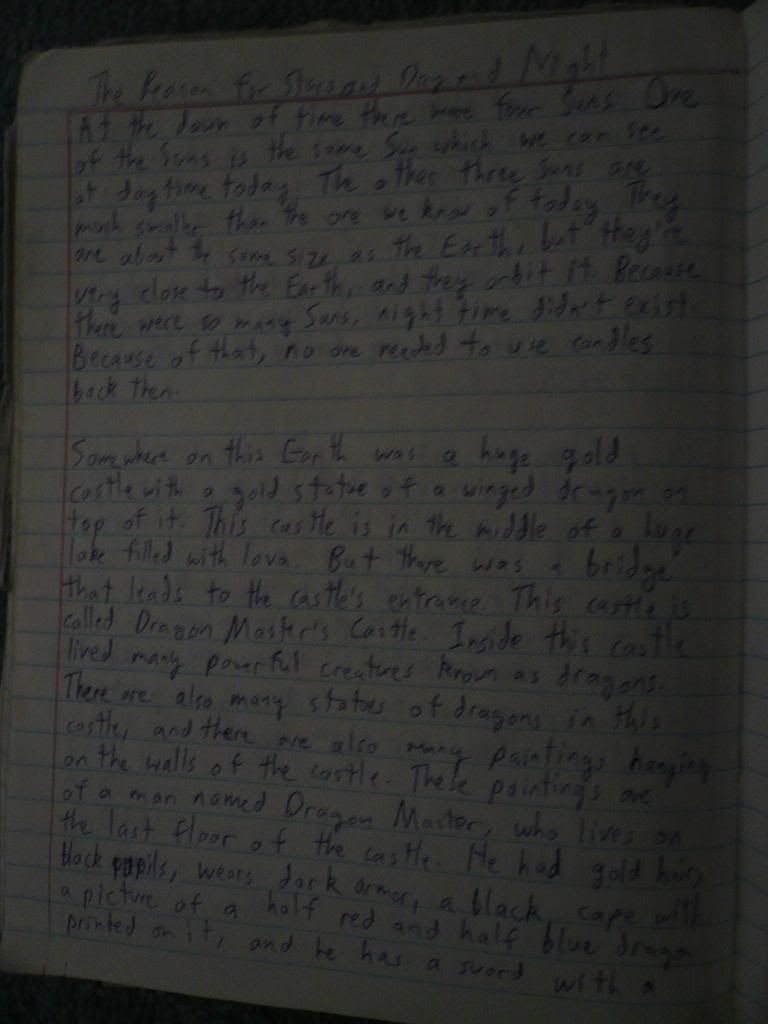 The Reason for Stars and Day and Night
At the dawn of time there were four Suns. One
of the Suns is the same Sun which we can see
at daytime today. The other three Suns are
much smaller than the one we know of today. They
are about the same size as the Earth, but they're
very close to the Earth, and they orbit it. Because
there were so many Suns, night time didn't exist.
Because of that, no one needed to use candles
back then.
Somewhere on this Earth was a huge gold
castle with a gold statue of a winged dragon on
top of it. This castle is in the middle of a huge
lake filled with lava. But there was a bridge
that leads to the castle's entrance. This castle is
called Dragon Master's Castle. Inside this castle
lived many powerful creatures known as dragons.
There are also many statues of dragons in this
castle, and there are also many paintings hanging
on the walls of the castle. These paintings are
of a man named Dragon Master, who lives on
the last floor of the castle. He had gold hair,
black pupils, wears dark armor, a black cape with
a picture of a half red and half blue dragon
printed on it, and he has a sword with a